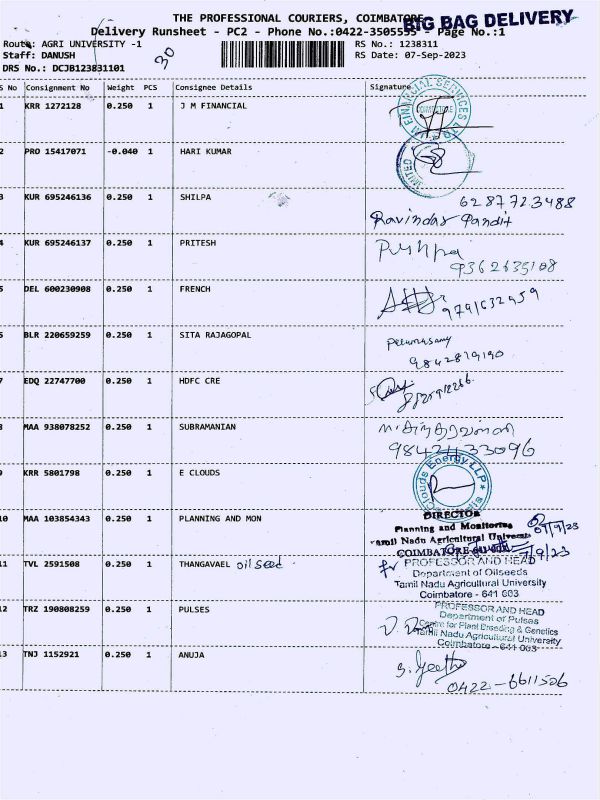 THE PROFESSIONAL COURIERS, COIMBATORE
BIG BAG DELIVERY
Delivery Runsheet - PC2 - Phone No.:0422-3505555 - Page No.:1
Route: AGRI UNIVERSITY -1
RS No.: 1238311
Staff: DANUSH
30
RS Date: 07-Sep-2023
DRS No.: DCJB123831101
S No Consignment No Weight PCS Consignee Details Signature
1 KRR 1272128 0.250 1 J M FINANCIAL
2 PRO 15417071 -0.040 1 HARI KUMAR
3 KUR 695246136 0.250 1 SHILPA 6287723488
Ravindar Pandit
4 KUR 695246137 0.250 1 PRITESH Pushpa
9362635108
5 DEL 600230908 0.250 1 FRENCH 9791632959
6 BLR 220659259 0.250 1 SITA RAJAGOPAL
9842819190
7 EDQ 22747700 0.250 1 HDFC CRE
8 MAA 938078252 0.250 1 SUBRAMANIAN
9 KRR 5801798 0.250 1 E CLOUDS Clouds Energy LLP
10 MAA 103854343 0.250 1 PLANNING AND MON DIRECTOR
Planning and Monitoring
07/9/23
Tamil Nadu Agricultural University
COIMBATORE
7/9/23
11 TVL 2591508 0.250 1 THANGAVAEL oil seed for PROFESSOR AND HEAD
Department of Oilseeds
Tamil Nadu Agricultural University
Coimbatore - 641 003
12 TRZ 190808259 0.250 1 PULSES PROFESSOR AND HEAD
Department of Pulses
Centre for Plant Breeding & Genetics
Tamil Nadu Agricultural University
Coimbatore - 641 003
13 TNJ 1152921 0.250 1 ANUJA S. Geetha
0422-6611506